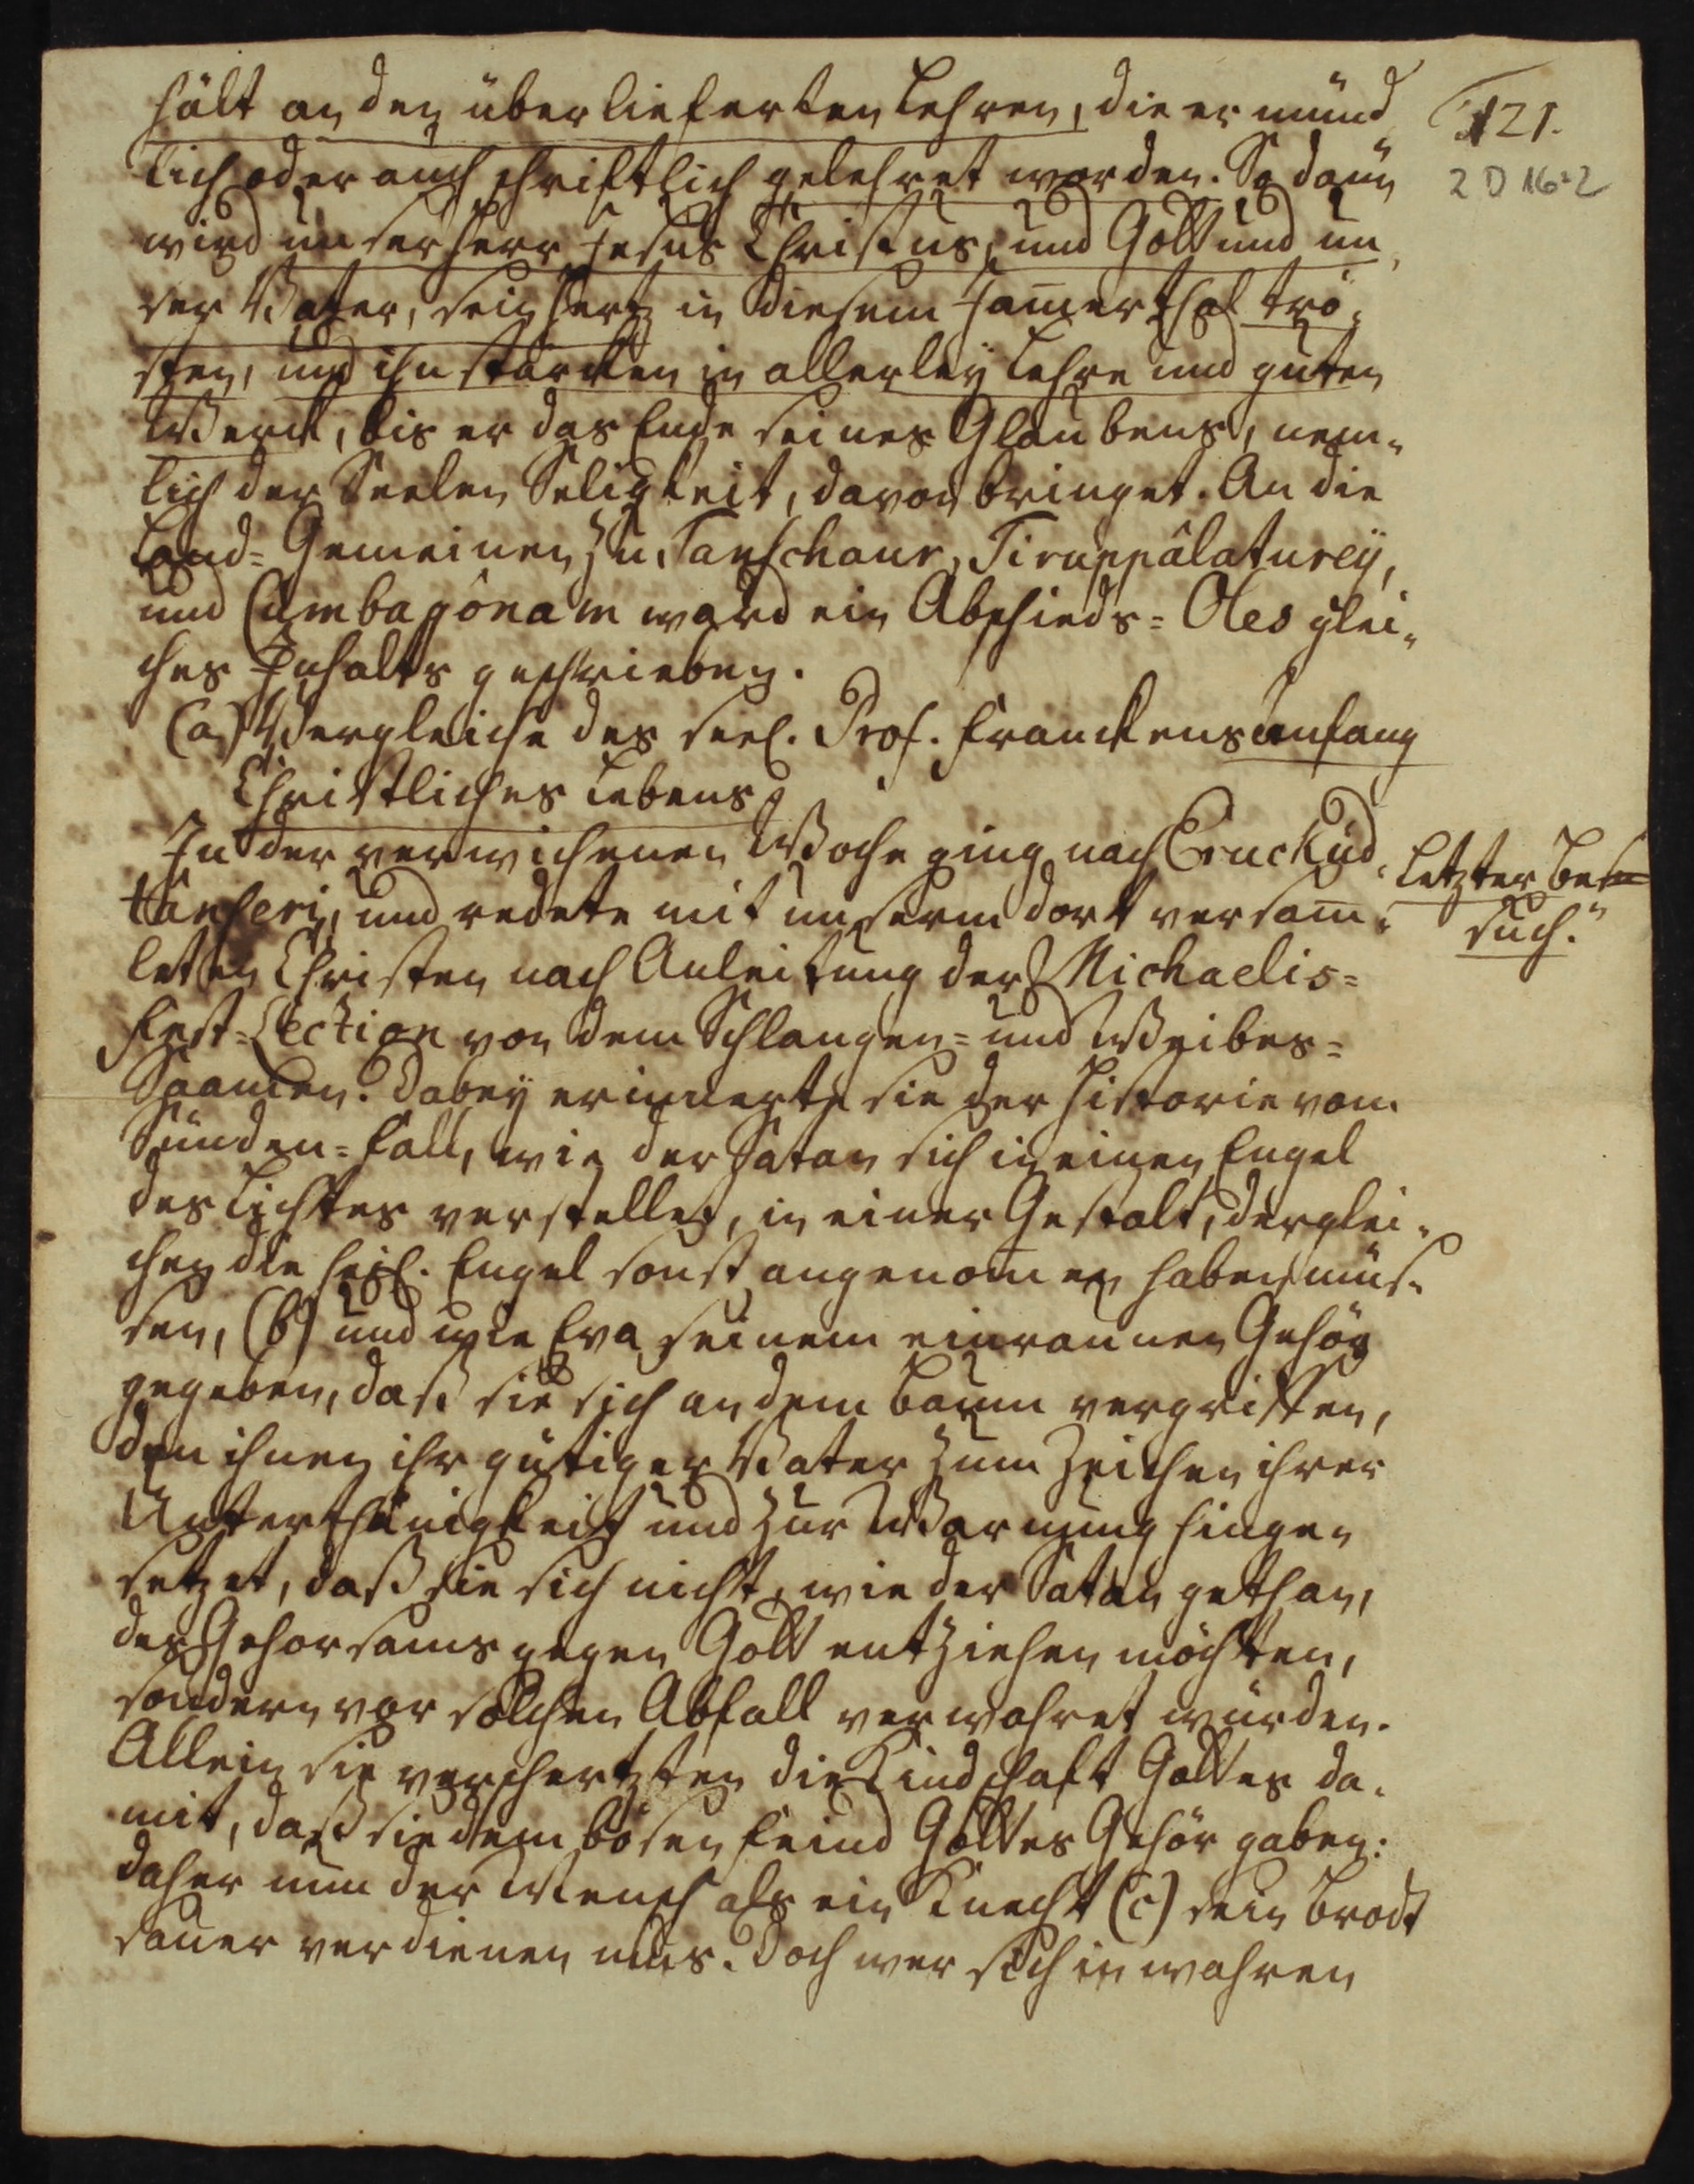 hält an den überlieferten Lehren, die er münd
121.
lich oder auch schriftlich gelehret worden. So dañ
2 D 16:2
wird unser Herr Jesus Christus, und Gott und un-
ser Vater, sein Hertz in diesem Jam̃erthal trö-
sten, und ihn stärcken in allerley Lehre und guten
Werck, bis er das Ende seines Glaubens, nem-
lich der Seelen Seligkeit, davon bringet. An die
Land-Gemeinen zu Tanschaur, Tiruppâlaturey,
und Cumbagônam ward ein Abschieds-Oles glei-
ches Inhalts geschrieben.
(a) Vergleiche des seel. Prof. Franckens Anfang
Christliches Lebens.
In der verwichenen Woche ging nach Erucküd-
Letzter Be-
tânseri, und redete mit unserm dort versam̃-
such.
leten Christen nach Anleitung der Michaelis-
Fest-Lection von dem Schlangen- und Weibes-
Saamen. Dabey erinnerte sie der Historie vom
Sünden-Fall, wie der Satan sich in einen Engel
des Lichtes verstellet, in einer Gestalt, derglei-
chen die heil. Engel sonst angenom̃en haben müs-
sen, (b) und wie Eva seinem einraunen Gehör
gegeben, daß sie sich an dem Baum vergriffen,
den ihnen ihr gütiger Vater zum Zeichen ihrer
Unterthänigkeit und zur Warnung hinge-
setzet, daß sie sich nicht, wie der Satan gethan,
des Gehorsams gegen Gott entziehen möchten,
sondern vor solchen Abfall verwahret würden.
Allein sie verschertzten die Kindschaft Gottes da-
mit, daß sie dem bösen Feind Gottes Gehör gaben:
daher nun der Mensch als ein Knecht (c) sein Brodt
sauer verdienen mus. Doch wer sich in wahren